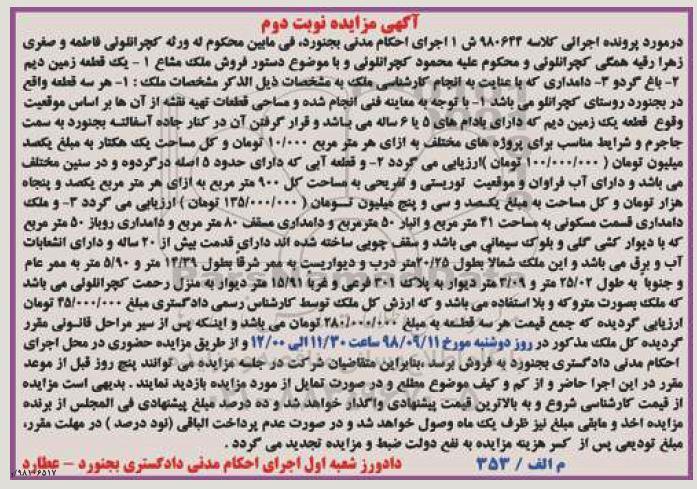 آگهی مزایده نوبت دوم
درمورد پرونده اجرائی کلاسه ۹۸۰۶۴۴ ش ۱ اجرای احکام مدنی بجنورد، فی مابین محکوم له ورثه کچرانلوئی فاطمه و صغری
زهرا رقیه همگی کچرانلوئی و محکوم علیه محمود کچرانلوئی و با موضوع دستور فروش ملک مشاع ۱ - یک قطعه زمین دیم
۲- باغ گردو ۳- دامداری که با عنایت به انجام کارشناسی ملک به مشخصات ذیل الذکر مشخصات ملک : ۱- هر سه قطعه واقع
در بجنورد روستای کچرانلو می باشد ۱- با توجه به معاینه فنی انجام شده و مساحی قطعات تهیه نقشه از آن ها بر اساس موقعیت
وقوع قطعه یک زمین دیم که دارای بادام های ۵ یا ۶ ساله می باشد و قرار گرفتن آن در کنار جاده آسفالته بجنورد به سمت
جاجرم و شرایط مناسب برای پروژه های مختلف به ازای هر متر مربع ۱۰/۰۰۰ تومان و کل مساحت یک هکتار به مبلغ یکصد
میلیون تومان ( ۱۰۰/۰۰۰/۰۰۰ تومان )ارزیابی می گردد ۲- و قطعه آبی که دارای حدود ۵ اصله درگردوه و در سنین مختلف
می باشد و دارای آب فراوان و موقعیت توریستی و تفریحی به مساحت کل ۹۰۰ متر مربع به ازای هر متر مربع یکصد و پنجاه
هزار تومان و کل مساحت به مبلغ یکصد و سی و پنج میلیون تومان ( ۱۳۵/۰۰۰/۰۰۰ تومان ) ارزیابی می گردد ۳- و ملک
دامداری قسمت مسکونی به مساحت ۴۱ متر مربع و انبار ۵۰ مترمربع و دامداری مسقف ۸۰ متر مربع و دامداری روباز ۵۰ متر مربع
که با دیوار کشی گلی و بلوک سیمانی می باشد و سقف چوبی ساخته شده اند دارای قدمت بیش از ۲۰ ساله و دارای انشعابات
آب و برق می باشد و این ملک شمالاً بطول ۲۰/۲۵متر درب و دیواریست به ممر شرقا بطول ۱۴/۳۹ متر و ۵/۹۰ متر به ممر عام
و جنوبا به طول ۲۵/۰۲ متر و ۳/۰۹ متر دیوار به پلاک ۳۰۱ فرعی و غربا ۱۵/۹۱ متر دیوار به منزل رحمت کچرانلوئی می باشد
که ملک بصورت متروکه و بلا استفاده می باشد و که ارزش کل ملک توسط کارشناس رسمی دادگستری مبلغ ۴۵/۰۰۰/۰۰۰ تومان
ارزیابی گردیده که جمع قیمت هر سه قطعه به مبلغ ۲۸۰/۰۰۰/۰۰۰ تومان می باشد و اینکه پس از سیر مراحل قانونی مقرر
گردیده کل ملک مذکور در روز دوشنبه مورخ ۹۸/۰۹/۱۱ ساعت ۱۱/۳۰ الی ۱۲/۰۰ و از طریق مزایده حضوری در محل اجرای
احکام مدنی دادگستری بجنورد به فروش برسد ،بنابراین متقاضیان شرکت در جلسه مزایده می توانند پنج روز قبل از موعد
مقرر در این اجرا حاضر و از کم و کیف موضوع مطلع و در صورت تمایل از مورد مزایده بازدید نمایند . بدیهی است مزایده
از قیمت کارشناسی شروع و به بالاترین قیمت پیشنهادی واگذار خواهد شد و ده درصد مبلغ پیشنهادی فی المجلس از برنده
مزایده اخذ و مابقی مبلغ نیز ظرف یک ماه وصول خواهد شد و در صورت عدم پرداخت الباقی (نود درصد ) در مهلت مقرر،
مبلغ تودیعی پس از کسر هزینه مزایده به نفع دولت ضبط و مزایده تجدید می گردد .
م الف / ۳۵۳ دادورز شعبه اول اجرای احکام مدنی دادگستری بجنورد - عطارد